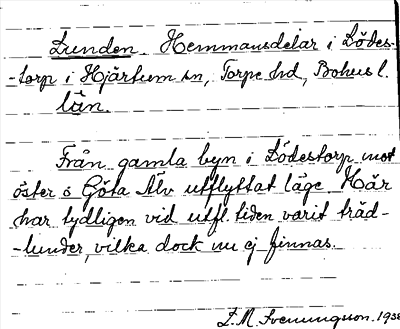 Lunden. Hemmansdelar i Lödes-
-torp i Hjärtum sn, Torpe hd, Bohus l.
län.
Från gamla byn i Lödestorp mot
öster o Göta Älv utflyttat läge. Här
har tydligen vid utfl. tiden varit träd-
-lunder, vilka dock nu ej finnas.
L.M. Svenungsson. 1938